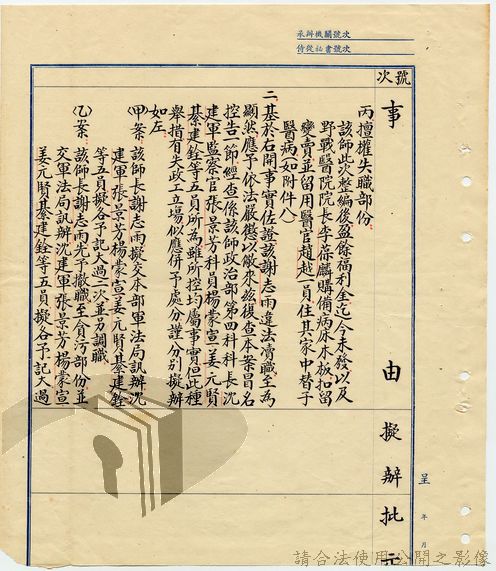 承辦機關號次
侍從祕書號次
號次
事由
擬辦
批示
呈
年
月
丙擅權失職部份
該師此次整編後盈餘福利金迄今未發以及
野戰醫院院長李葆麟購備病床木板扣留
變賣並留用醫官趙越一員住其家中替子
醫病(如附件八)
二、基於右開事實佐證該謝志雨違法瀆職至為
顯然應予依法嚴懲以儆來茲復查本案冒名
控告一節經查係該師政治部第四科科長沈
建軍監察官張景芳科員楊蒙宣姜元賢
綦建銓等五員所為雖所控均屬事實但此種
舉措有失政工立場似應併予處分謹分別擬辦
如左
(甲)案 該師長謝志雨擬交本部軍法局訊辦沈
建軍張景芳楊蒙宣姜元賢綦建銓
等五員擬各予記大過二次並力調職
(乙)案 該師長謝志雨先予撤職至貪污部份並
交軍法局訊辦沈建軍張景芳楊蒙宣
姜元賢綦建銓等五員擬各予記大過
請合法使用公開之影像